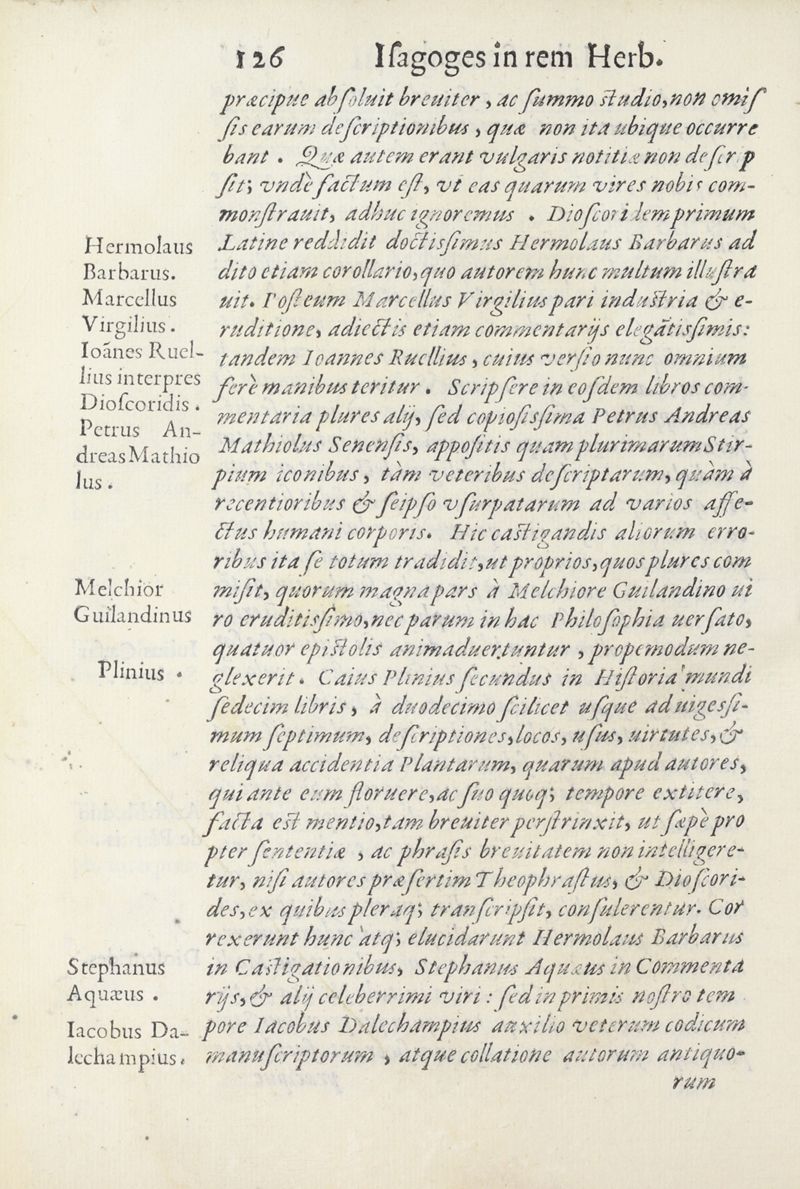 126 Iſagoges in rem Herb.
præcipue abſoluit breuiter, ac ſummo ſtudio, non omiſ
ſis earum deſcriptionibus, quæ non ita ubique occurre
bant. Quæ autem erant vulgaris notitiæ non deſcrip
ſit; vnde factum eſt, vt eas quarum vires nobis com-
monſtrauit, adhuc ignoremus. Dioſcoridem primum
Hermolaus
Barbarus.
Marcellus
Virgilius.
Ioānes Ruel-
lius interpres
Dioſcoridis.
Petrus An-
dreas Mathio
lus.
Latine reddidit doctisſimus Hermolaus Barbarus ad
dito etiam corollario, quo autorem hunc multum illuſtra
uit. Poſt eum Marcellus Virgilius pari induſtria & e-
ruditione, adiectis etiam commentarijs elegātisſimis:
tandem Ioannes Ruellius, cuius verſio nunc omnium
ferè manibus teritur. Scripſere in eoſdem libros com-
mentaria plures alij, ſed copioſisſima Petrus Andreas
Mathiolus Senenſis, appoſitis quam plurimarum Stir-
pium iconibus, tàm veteribus deſcriptarum, quàm à
recentioribus & ſeipſo vſurpatarum ad varios affe-
ctus humani corporis. Hic caſtigandis aliorum erro-
ribus ita ſe totum tradidit, ut proprios, quos plures com
Melchior
Guilandinus
miſit, quorum magna pars à Melchiore Guilandino ui
ro eruditisſimo, nec parum in hac Philoſophia uerſato,
quatuor epiſtolis animaduertuntur, propemodum ne-
Plinius.
glexerit. Caius Plinius ſecundus in Hiſtoria mundi
ſedecim libris, à duodecimo ſcilicet uſque ad uigesſi-
mum ſeptimum, deſcriptiones, locos, uſus, uirtutes, &
reliqua accidentia Plantarum, quarum apud autores,
qui ante eum floruere, ac ſuo quoq; tempore extitere,
facta eſt mentio, tam breuiter perſtrinxit, ut ſæpè pro
pter ſententiæ, ac phraſis breuitatem non intelligere-
tur, niſi autores præſertim Theophraſtus, & Dioſcori-
des, ex quibus pleraq; tranſcripſit, conſulerentur. Cor
rexerunt hunc atq; elucidarunt Hermolaus Barbarus
Stephanus
Aquæus.
in Caſtigationibus, Stephanus Aquæus in Commenta
rijs, & alij celeberrimi viri: ſed in primis noſtro tem
Iacobus Da-
lechampius.
pore Iacobus Dalechampius auxilio veterum codicum
manuſcriptorum, atque collatione autorum antiquo-
rum